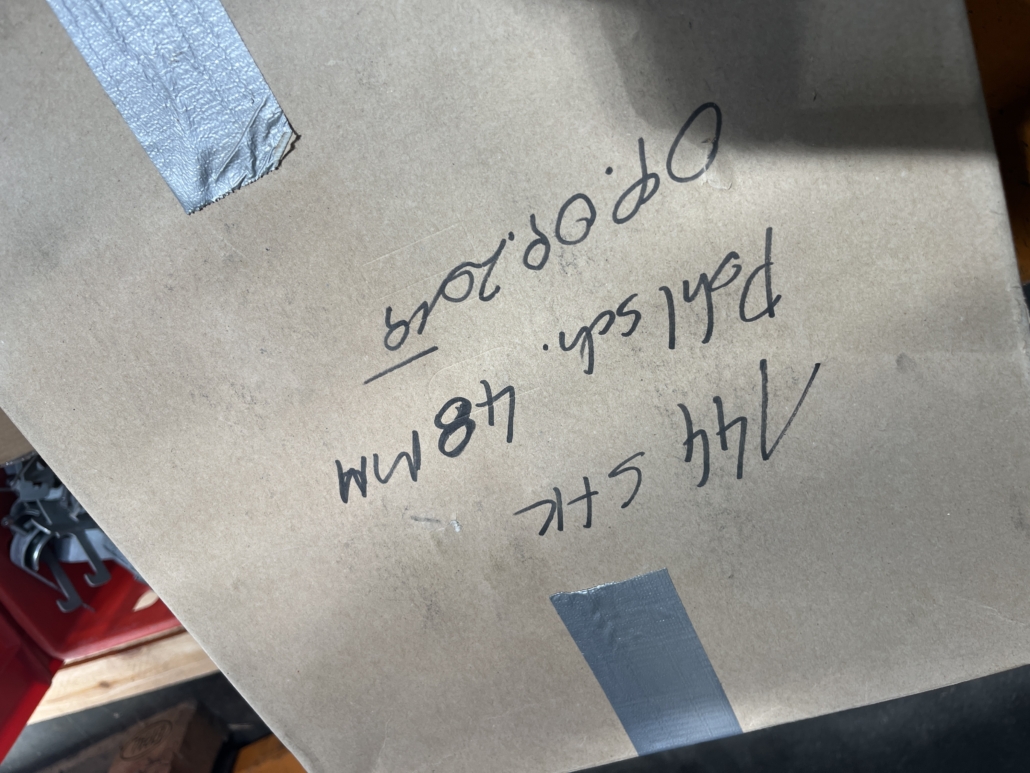 144 Stk
Pahlsch. 48 MM
09.09.2019